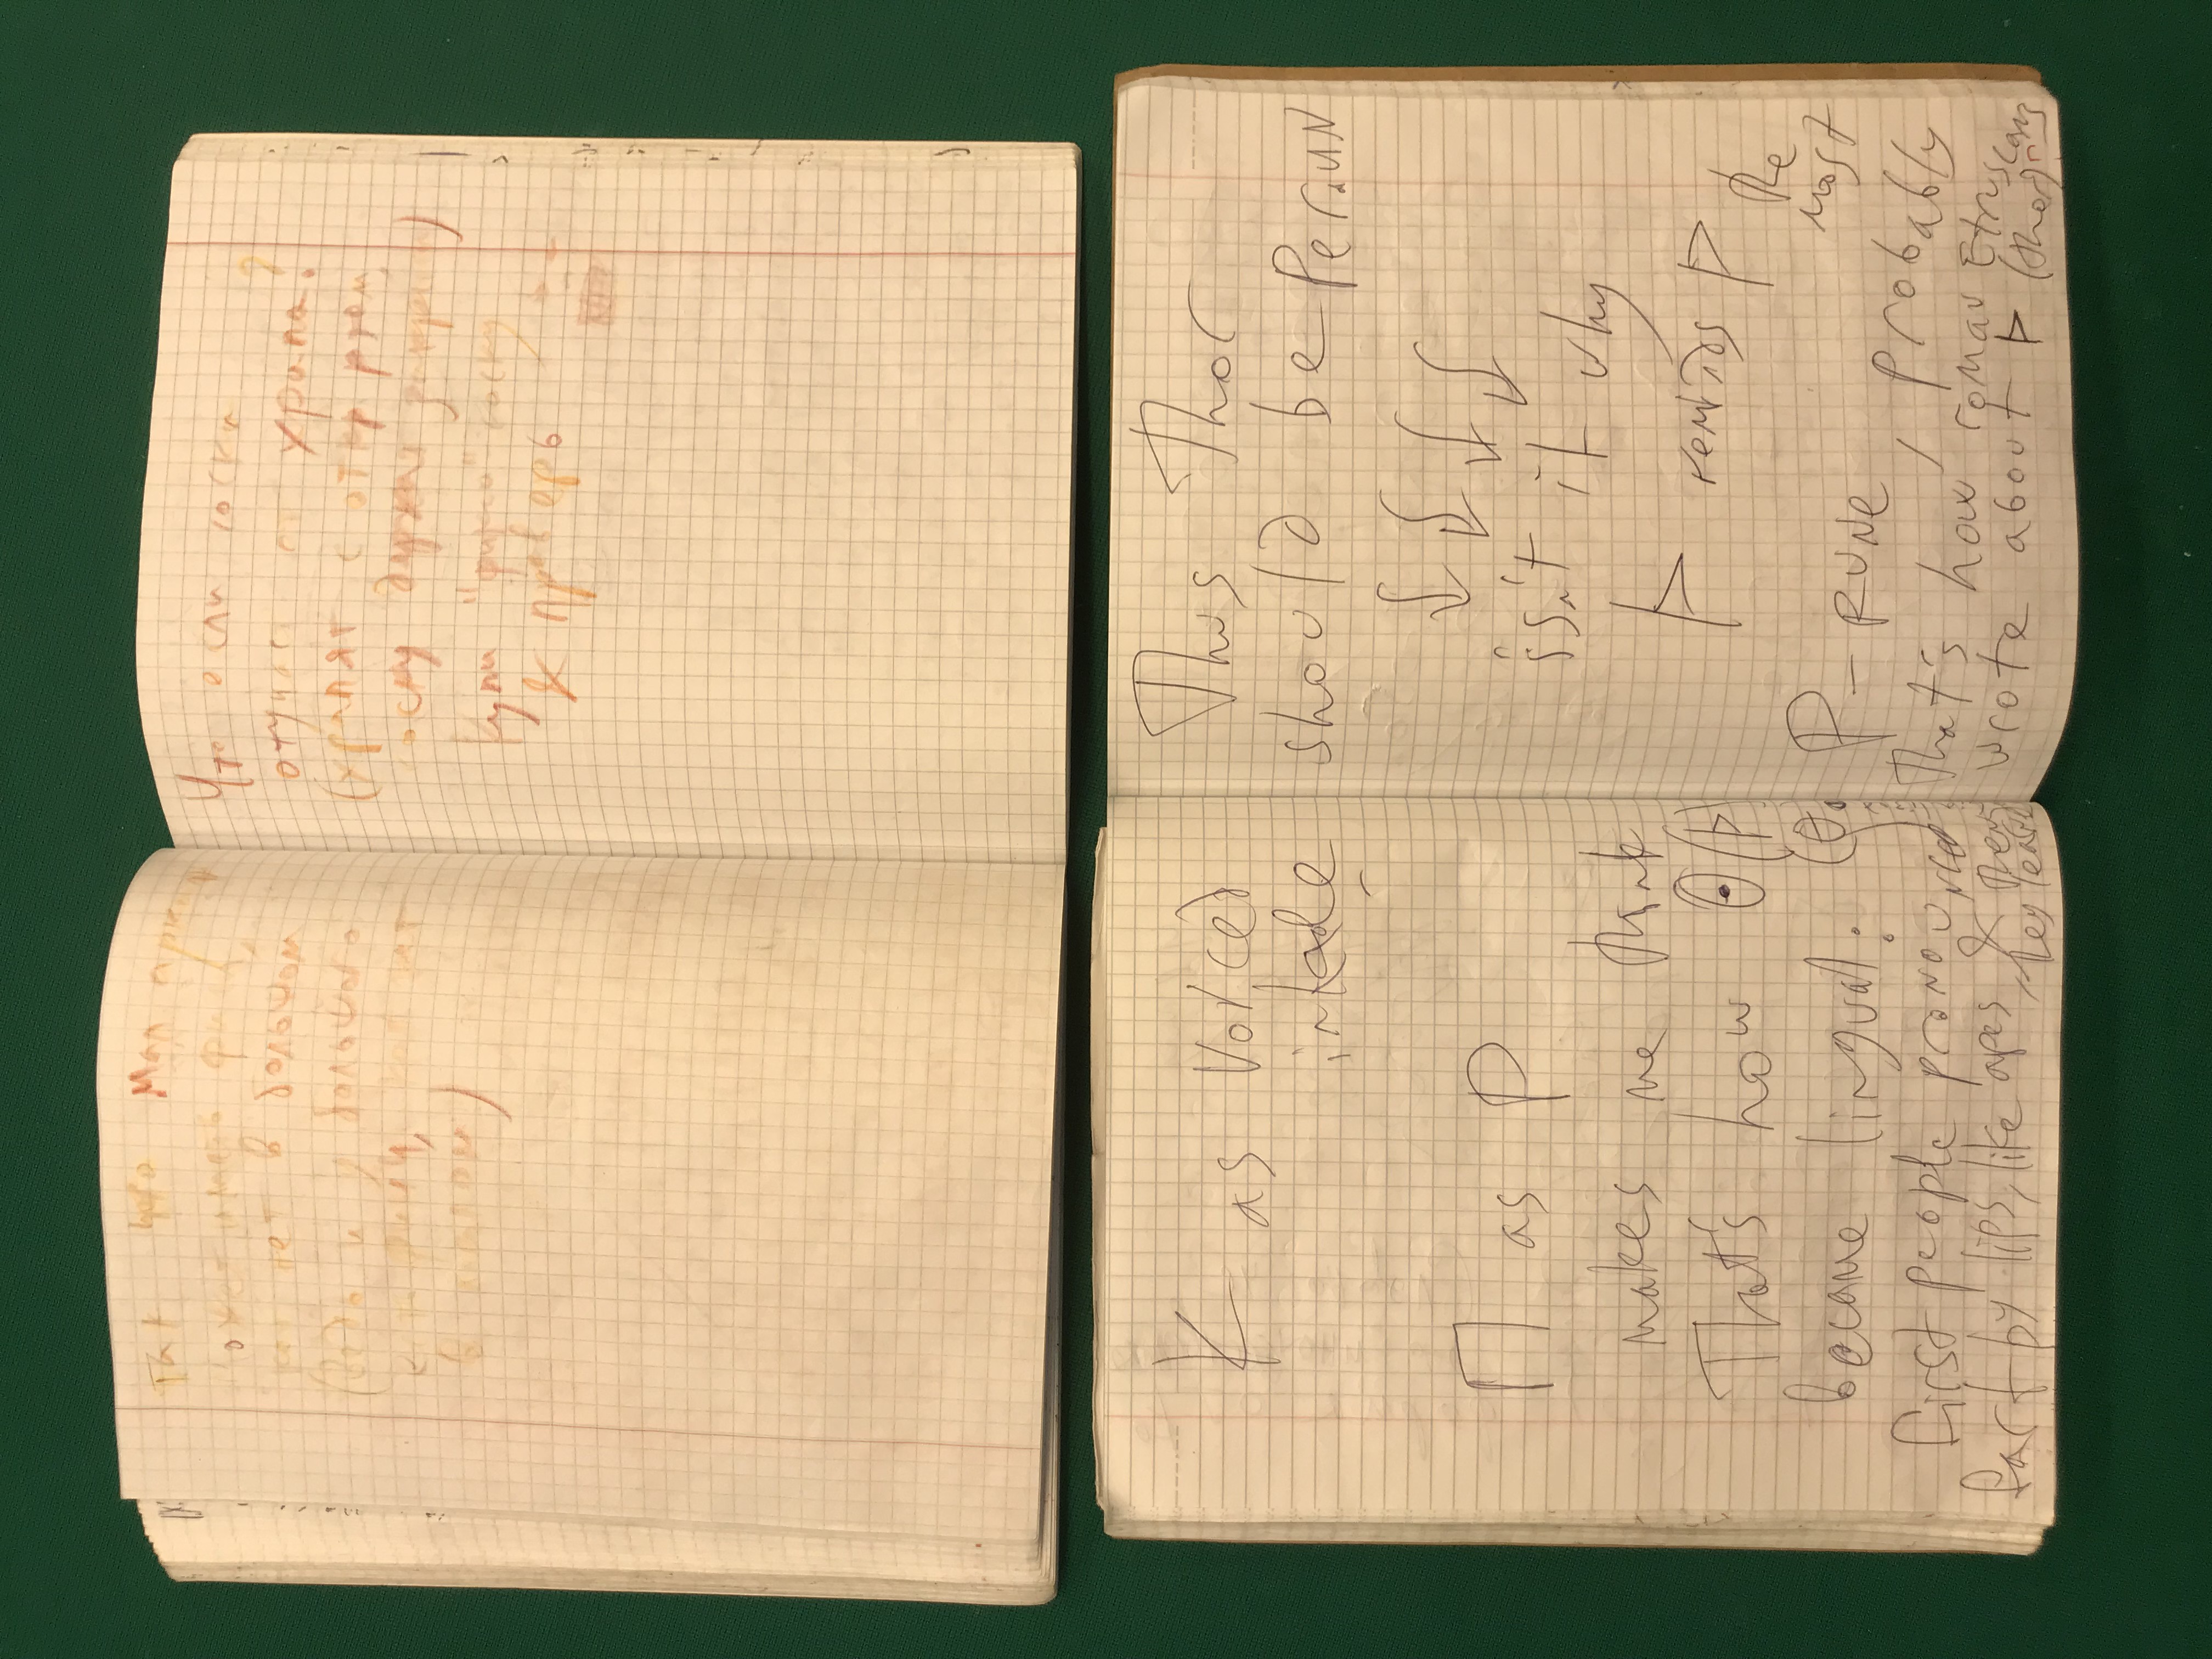 так что мал
может иметь
нет в большом
(ведь и у большого
в малом)
Что если соски
отучают от храпа?
(храпят с откр ртом,
соску держат закрыт)
Купи соску
& проверь
K as voiced
inhale
П as P
makes me think
That's how ʘ(Þ
became lingual:
first people pronounced
fart by lips, like apes & then
they learn
Thus Thor
should be Perun
isn't it why
Þ reminds P the
most
P-RUNE, probably
That's how roman Etruscans
wrote about Þ (thor)